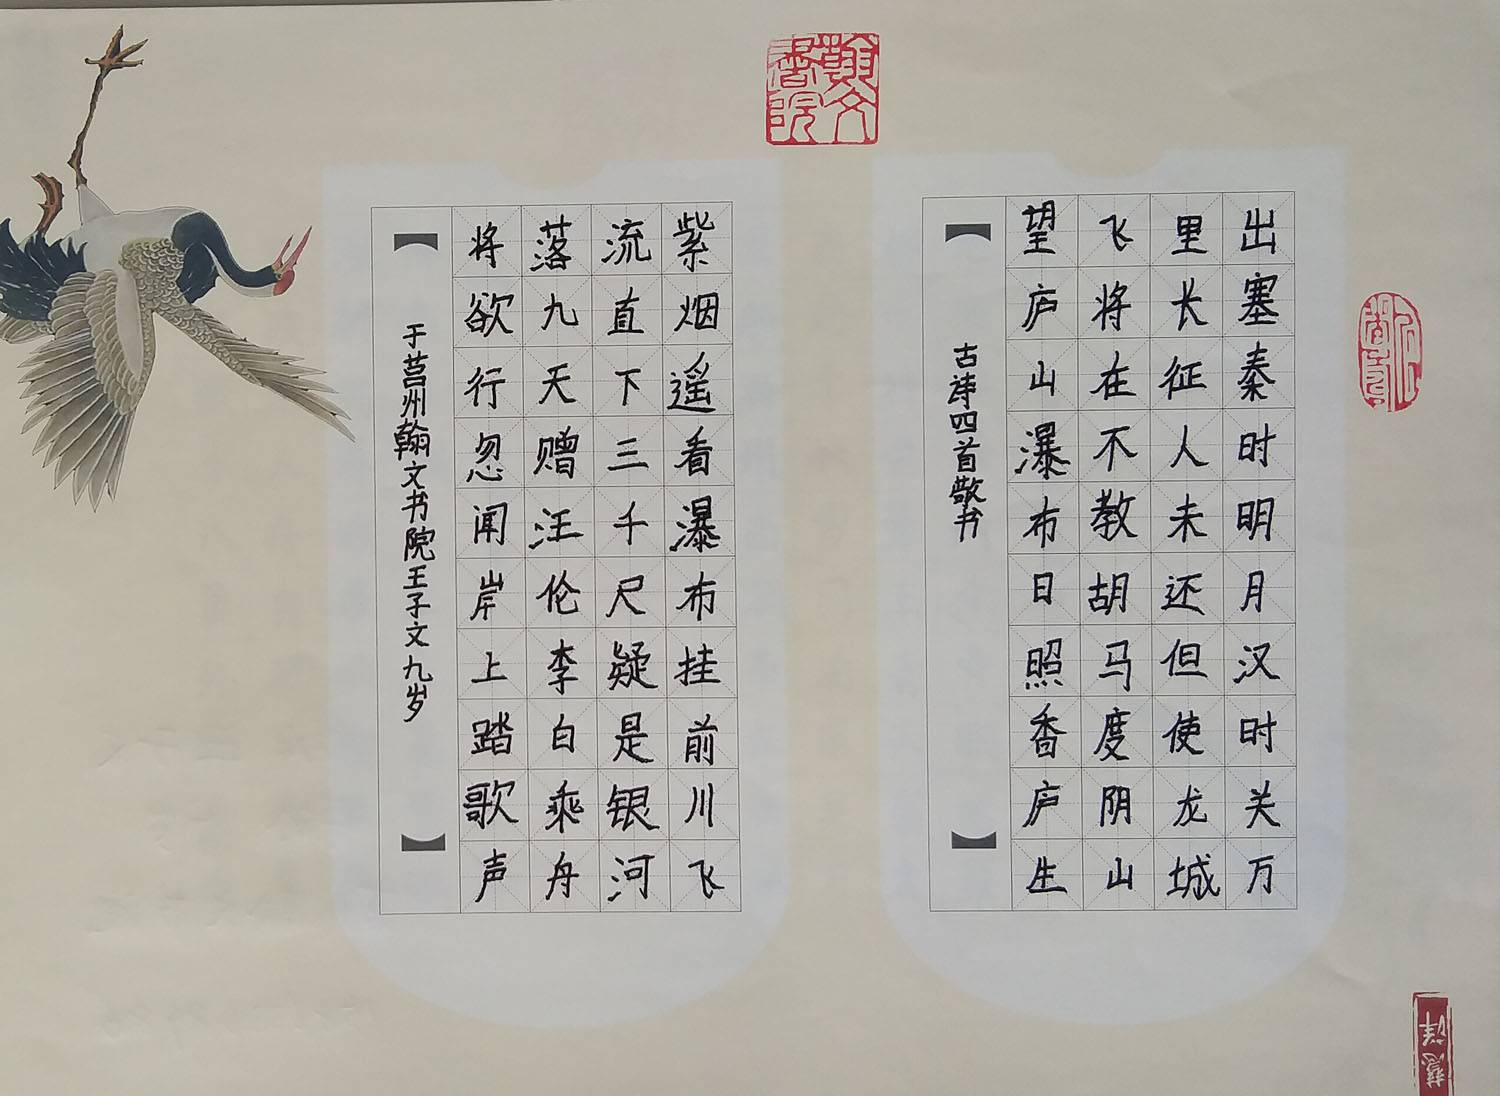 翰文書院
出塞秦时明月汉时关万
里长征人未还但使龙城
飞将在不教胡马度阴山
望庐山瀑布日照香庐生
古诗四首敬书
紫烟遥看瀑布挂前川飞
流直下三千尺疑是银河
落九天赠汪伦李白乘舟
将欲行忽闻岸上踏歌声
于莒州翰文书院王子文九岁